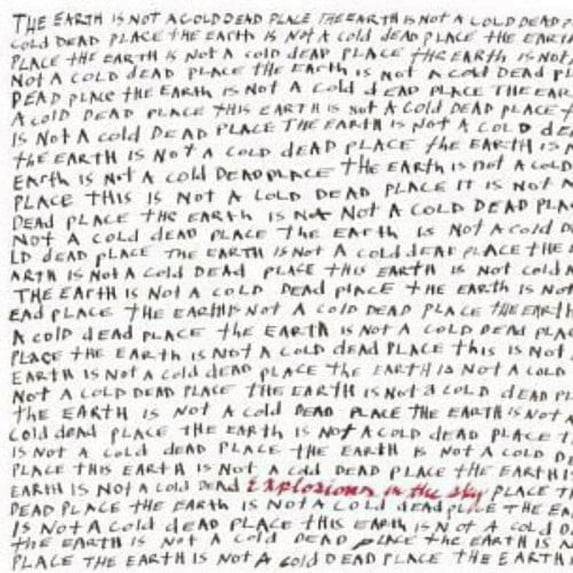 THE EARTH IS NOT A COLD DEAD PLACE THE EARTH IS NOT A COLD DEAD P
COLD DEAD PLACE THE EARTH IS NOT A COLD DEAD PLACE THE EARTH
PLACE THE EARTH IS NOT A COLD DEAD PLACE THE EARTH IS NOT
NOT A COLD DEAD PLACE THE EARTH IS NOT A COLD DEAD PL
DEAD PLACE THE EARTH IS NOT A COLD DEAD PLACE THE EAR
A COLD DEAD PLACE THIS EARTH IS NOT A COLD DEAD PLACE T
IS NOT A COLD DEAD PLACE THE EARTH IS NOT A COLD DE
THE EARTH IS NOT A COLD DEAD PLACE THE EARTH IS N
EARTH IS NOT A COLD DEAD PLACE THE EARTH IS NOT A COLD
PLACE THIS IS NOT A COLD DEAD PLACE IT IS NOT A
DEAD PLACE THE EARTH IS NA NOT A COLD DEAD PLA
NOT A COLD DEAD PLACE THE EARTH IS NOT A COLD D
LD DEAD PLACE THE EARTH IS NOT A COLD DEAD PLACE THE
ARTH IS NOT A COLD DEAD PLACE THIS EARTH IS NOT COLD A
THE EARTH IS NOT A COLD DEAD PLACE THE EARTH IS NOT
EAD PLACE THE EARTH IS NOT A COLD DEAD PLACE THE EARTH
A COLD DEAD PLACE THE EARTH IS NOT A COLD DEAD PLAC
PLACE THE EARTH IS NOT A COLD DEAD PLACE THIS IS NOT
EARTH IS NOT A COLD DEAD PLACE THE EARTH IS NOT A COLD
NOT A COLD DEAD PLACE THE EARTH IS NOT A COLD DEAD PL
THE EARTH IS NOT A COLD DEAD PLACE THE EARTH IS NOT A
COLD DEAD PLACE THE EARTH IS NOT A COLD DEAD PLACE T
IS NOT A COLD DEAD PLACE THE EARTH IS NOT A COLD DE
PLACE THIS EARTH IS NOT A COLD DEAD PLACE THE EARTH IS
EARTH IS NOT A COLD DEAD Explosions in the sky PLACE T
DEAD PLACE THE EARTH IS NOT A COLD DEAD PLACE THE EA
IS NOT A COLD DEAD PLACE THIS EARTH IS NOT A COLD D
THE EARTH IS NOT A COLD DEAD PLACE THE EARTH IS N
PLACE THE EARTH IS NOT A COLD DEAD PLACE THE EARTH